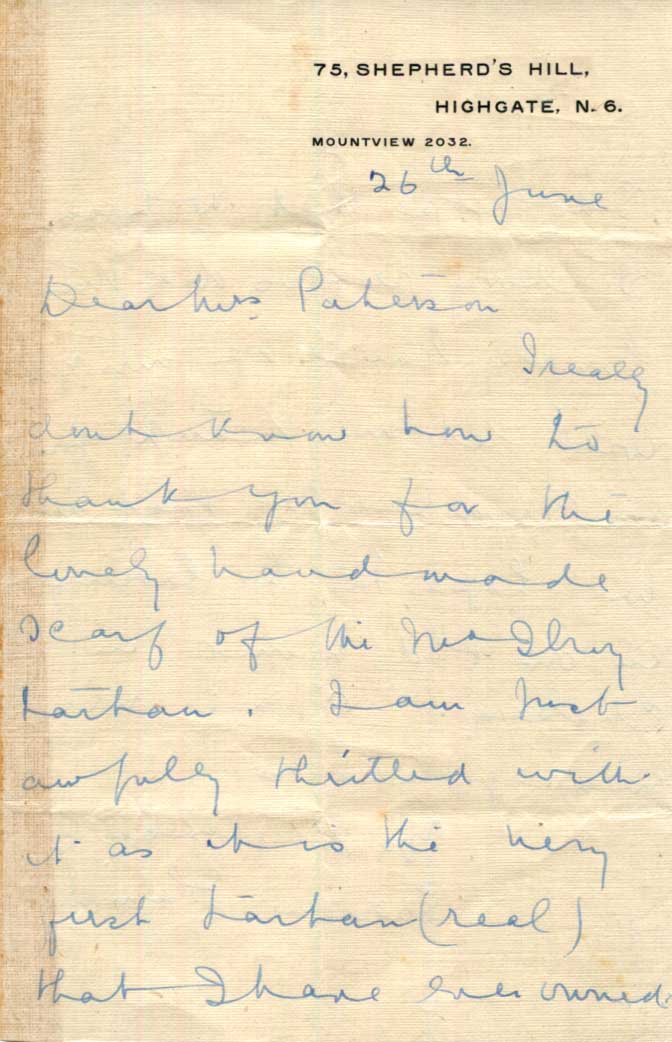 75, SHEPHERD'S HILL,
HIGHGATE, N. 6.
MOUNTVIEW 2032.
26th June
Dear Mrs Paterson
I really
dont know how to
thank you for the
lovely handmade
scarf of the McIlroy
tartan. I am just
awfully thrilled with
it as it is the very
first tartan (real)
that I have ever owned.